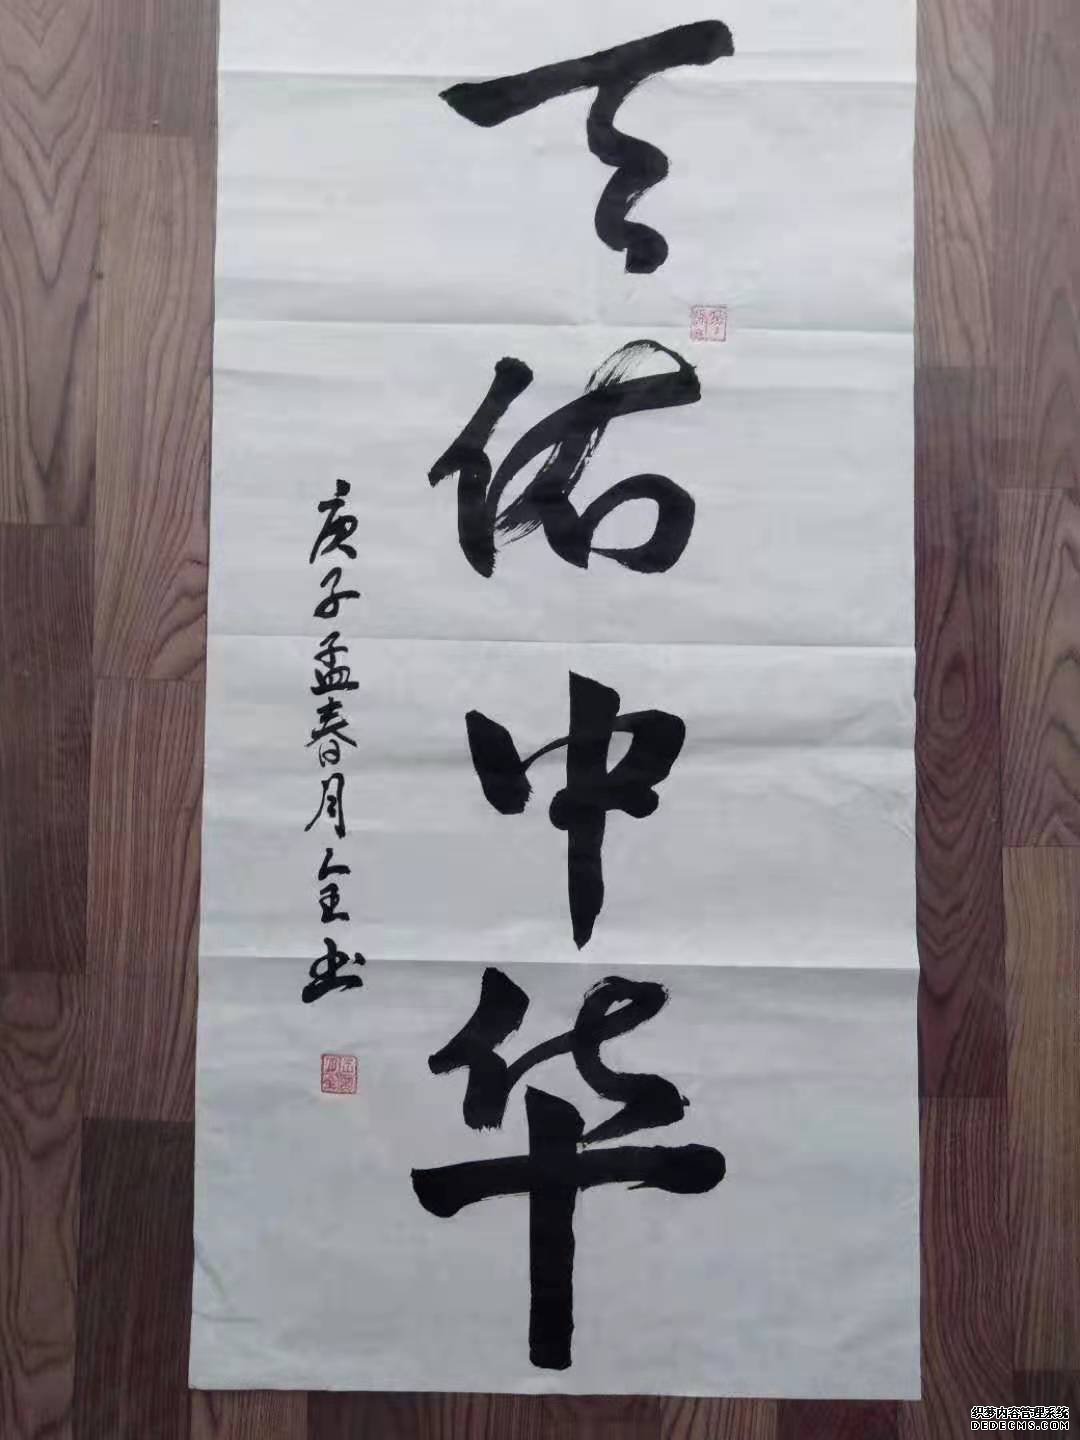 天佑中华
庚子孟春月全书
织梦内容管理系统
DEDECMS.COM